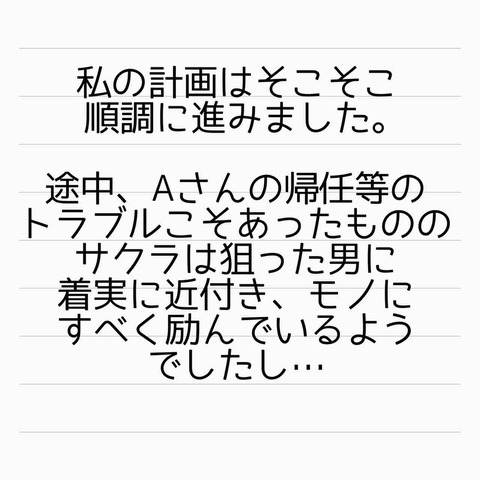 私の計画はそこそこ
順調に進みました。
途中、Aさんの帰任等の
トラブルこそあったものの
サクラは狙った男に
着実に近付き、モノに
すべく励んでいるよう
でしたし…